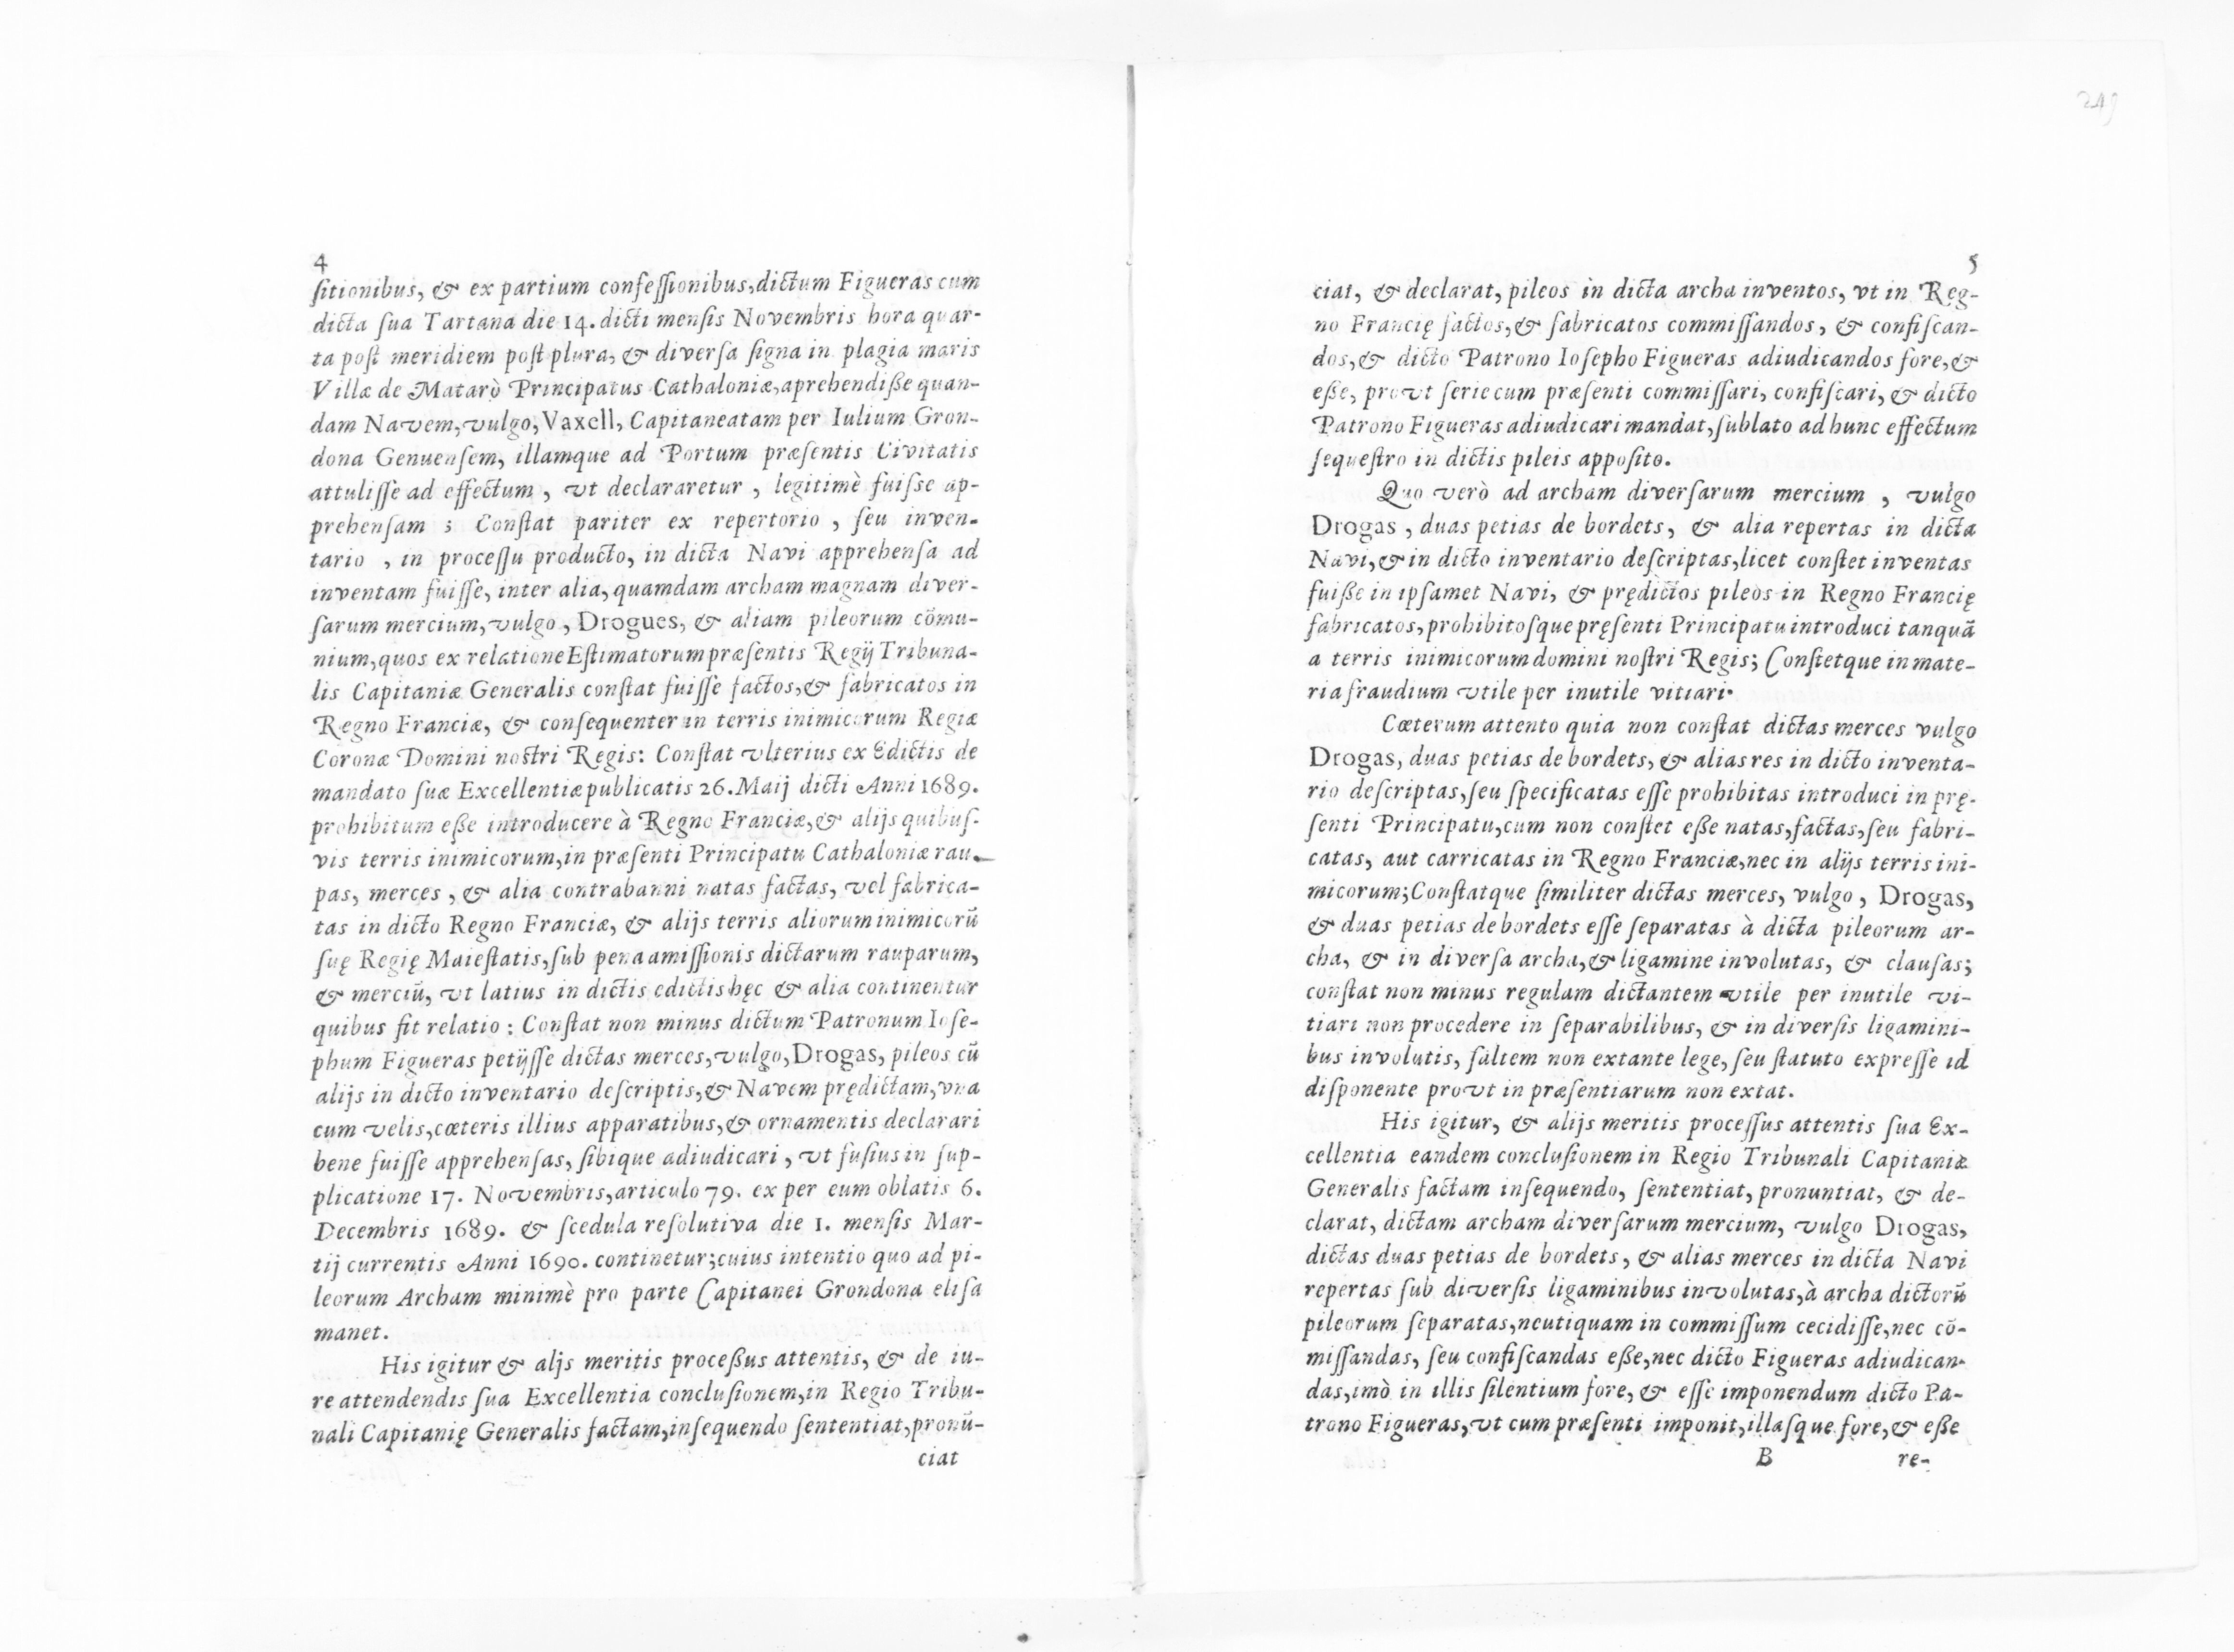 4
ſitionibus, & ex partium confeſſionibus, dictum Figueras cum
dicta ſua Tartana die 14. dicti menſis Novembris hora quar-
ta poſt meridiem poſt plura, & diverſa ſigna in plagia maris
Villæ de Matarò Principatus Cathaloniæ, aprehendiße quan-
dam Navem, vulgo, Vaxell, Capitaneatam per Iulium Gron-
dona Genuenſem, illamque ad Portum præſentis Civitatis
attuliſſe ad effectum, vt declararetur, legitimè fuiſse ap-
prehenſam ; Conſtat pariter ex repertorio, ſeu inven-
tario, in proceſſu producto, in dicta Navi apprehenſa ad
inventam fuiſſe, inter alia, quamdam archam magnam diver-
ſarum mercium, vulgo, Drogues, & aliam pileorum cõmu-
nium, quos ex relatione Eſtimatorum præſentis Regij Tribuna-
lis Capitaniæ Generalis conſtat fuiſſe factos, & fabricatos in
Regno Franciæ, & conſequenter in terris inimicorum Regiæ
Coronæ Domini nostri Regis: Conſtat vlterius ex Edictis de
mandato ſuæ Excellentiæ publicatis 26. Maij dicti Anni 1689.
prohibitum eße introducere à Regno Franciæ, & alijs quibuſ-
vis terris inimicorum, in præſenti Principatu Cathaloniæ rau-
pas, merces, & alia contrabanni natas factas, vel fabrica-
tas in dicto Regno Franciæ, & alijs terris aliorum inimicorũ
ſuę Regię Maieſtatis, ſub pena amiſſionis dictarum rauparum,
& merciũ, vt latius in dictis edictis hęc & alia continentur
quibus fit relatio : Conſtat non minus dictum Patronum Ioſe-
phum Figueras petijſſe dictas merces, vulgo, Drogas, pileos cũ
alijs in dicto inventario deſcriptis, & Navem prędictam, vna
cum velis, cœteris illius apparatibus, & ornamentis declarari
bene fuiſſe apprehenſas, ſibique adiudicari, vt fuſius in ſup-
plicatione 17. Novembris, articulo 79. ex per eum oblatis 6.
Decembris 1689. & scedula reſolutiva die 1. menſis Mar-
tij currentis Anni 1690. continetur; cuius intentio quo ad pi-
leorum Archam minimè pro parte Capitanei Grondona eliſa
manet.
His igitur & aljs meritis proceßus attentis, & de iu-
re attendendis ſua Excellentia concluſionem, in Regio Tribu-
nali Capitanię Generalis factam, inſequendo ſententiat, pronũ-
ciat
249
5
ciat, & declarat, pileos in dicta archa inventos, vt in Reg-
no Francię factos, & fabricatos commiſſandos, & confiſcan-
dos, & dicto Patrono Ioſepho Figueras adiudicandos fore, &
eße, provt ſerie cum præſenti commiſſari, confiſcari, & dicto
Patrono Figueras adiudicari mandat, ſublato ad hunc effectum
ſequeſtro in dictis pileis appoſito.
Quo verò ad archam diverſarum mercium, vulgo
Drogas, duas petias de bordets, & alia repertas in dicta
Navi, & in dicto inventario deſcriptas, licet conſtet inventas
fuiße in ipſamet Navi, & prędictos pileos in Regno Francię
fabricatos, prohibitoſque pręſenti Principatu introduci tanquã
a terris inimicorum domini noſtri Regis; Conſtetque in mate-
ria fraudium vtile per inutile vitiari.
Cæterum attento quia non conſtat dictas merces vulgo
Drogas, duas petias de bordets, & alias res in dicto inventa-
rio deſcriptas, ſeu ſpecificatas eſſe prohibitas introduci in prę-
ſenti Principatu, cum non conſtet eße natas, factas, ſeu fabri-
catas, aut carricatas in Regno Franciæ, nec in alijs terris ini-
micorum; Conſtatque ſimiliter dictas merces, vulgo, Drogas,
& duas petias de bordets eſſe ſeparatas à dicta pileorum ar-
cha, & in diverſa archa, & ligamine involutas, & clauſas;
conſtat non minus regulam dictantem vtile per inutile vi-
tiari non procedere in ſeparabilibus, & in diverſis ligamini-
bus involutis, ſàltem non extante lege, ſeu ſtatuto expreſſe id
diſponente provt in præſentiarum non extat.
His igitur, & alijs meritis proceſſus attentis ſua Ex-
cellentia eandem concluſionem in Regio Tribunali Capitaniæ
Generalis factam inſequendo, ſententiat, pronuntiat, & de-
clarat, dictam archam diverſarum mercium, vulgo Drogas,
dictas duas petias de bordets, & alias merces in dicta Navi
repertas ſub diverſis ligaminibus involutas, à archa dictorũ
pileorum ſeparatas, neutiquam in commiſſum cecidiſſe, nec cõ-
miſſandas, ſeu confiſcandas eße, nec dicto Figueras adiudican-
das, imò in illis ſilentium fore, & eſſe imponendum dicto Pa-
trono Figueras, vt cum præſenti imponit, illaſque fore, & eße
B re-